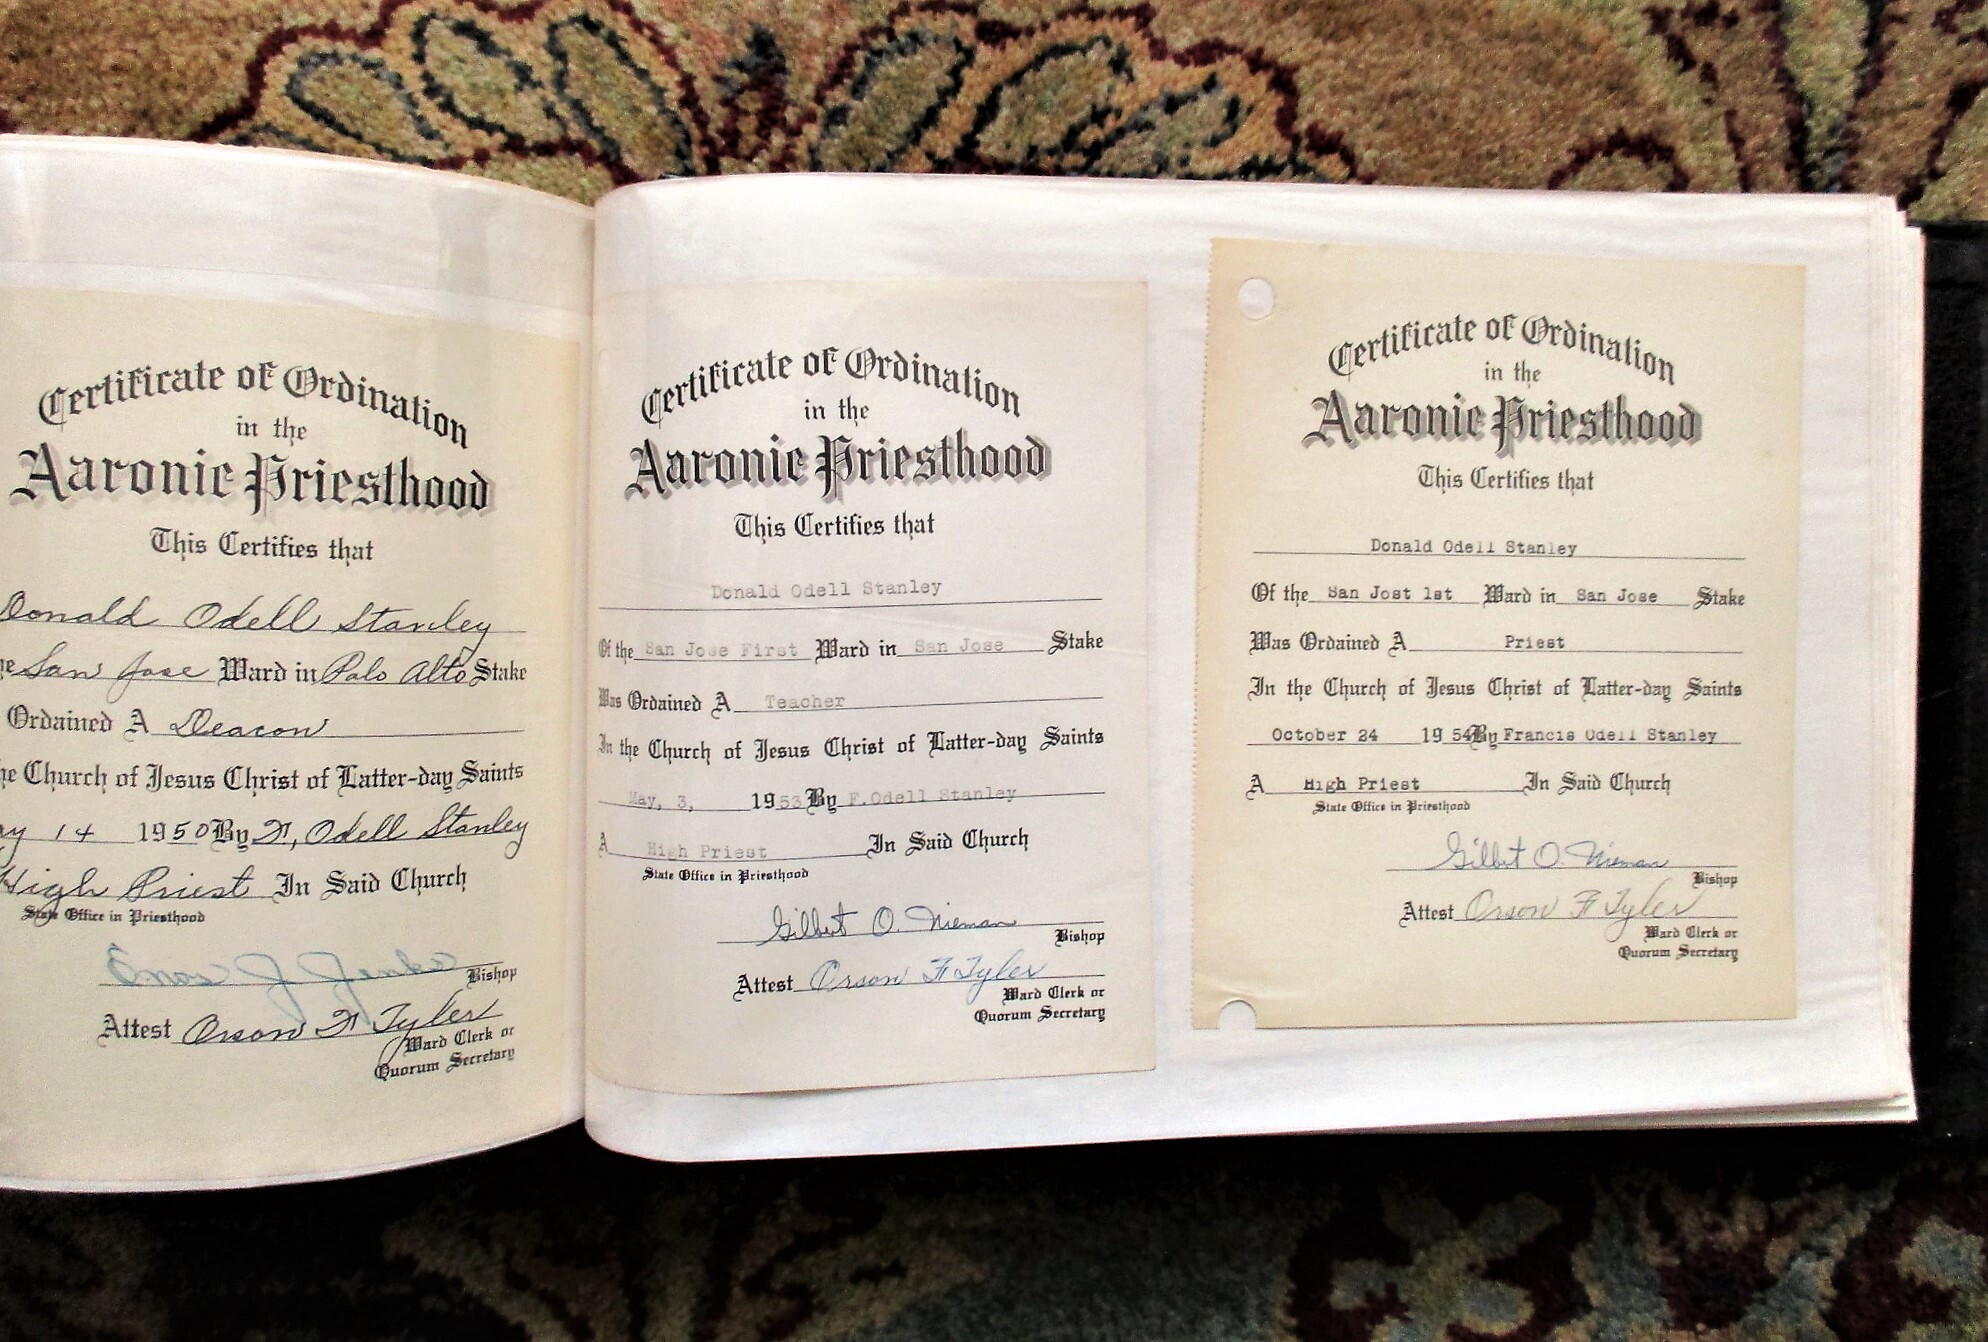 Certificate of Ordination
in the
Aaronic Priesthood
This Certifies that
Donald Odell Stanley
San Jose Ward in Palo Alto Stake
Ordained A Deacon
Church of Jesus Christ of Latter-day Saints
14 1950 By F. Odell Stanley
High Priest In Said Church
State Office in Priesthood
Bishop
Attest Orson F Tyler
Ward Clerk or
Quorum Secretary
Certificate of Ordination
in the
Aaronic Priesthood
This Certifies that
Donald Odell Stanley
Of the San Jose First Ward in San Jose Stake
Was Ordained A Teacher
In the Church of Jesus Christ of Latter-day Saints
May, 3, 1953 By F.Odell Stanley
A High Priest In Said Church
State Office in Priesthood
Gilbert O. Nieman
Bishop
Attest Orson F Tyler
Ward Clerk or
Quorum Secretary
Certificate of Ordination
in the
Aaronic Priesthood
This Certifies that
Donald Odell Stanley
Of the San Jost 1st Ward in San Jose Stake
Was Ordained A Priest
In the Church of Jesus Christ of Latter-day Saints
October 24 1954 By Francis Odell Stanley
A High Priest In Said Church
State Office in Priesthood
Gilbert O. Nieman
Bishop
Attest Orson F Tyler
Ward Clerk or
Quorum Secretary